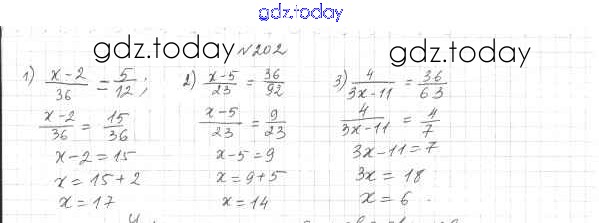 gdz.today
gdz.today N202 gdz.today
1) x-2/36 = 5/12;
x-2/36 = 15/36
x-2=15
x=15+2
x=17
2) x-5/23 = 36/92
x-5/23 = 9/23
x-5=9
x=9+5
x=14
3) 4/3x-11 = 36/63
4/3x-11 = 4/7
3x-11=7
3x=18
x=6.